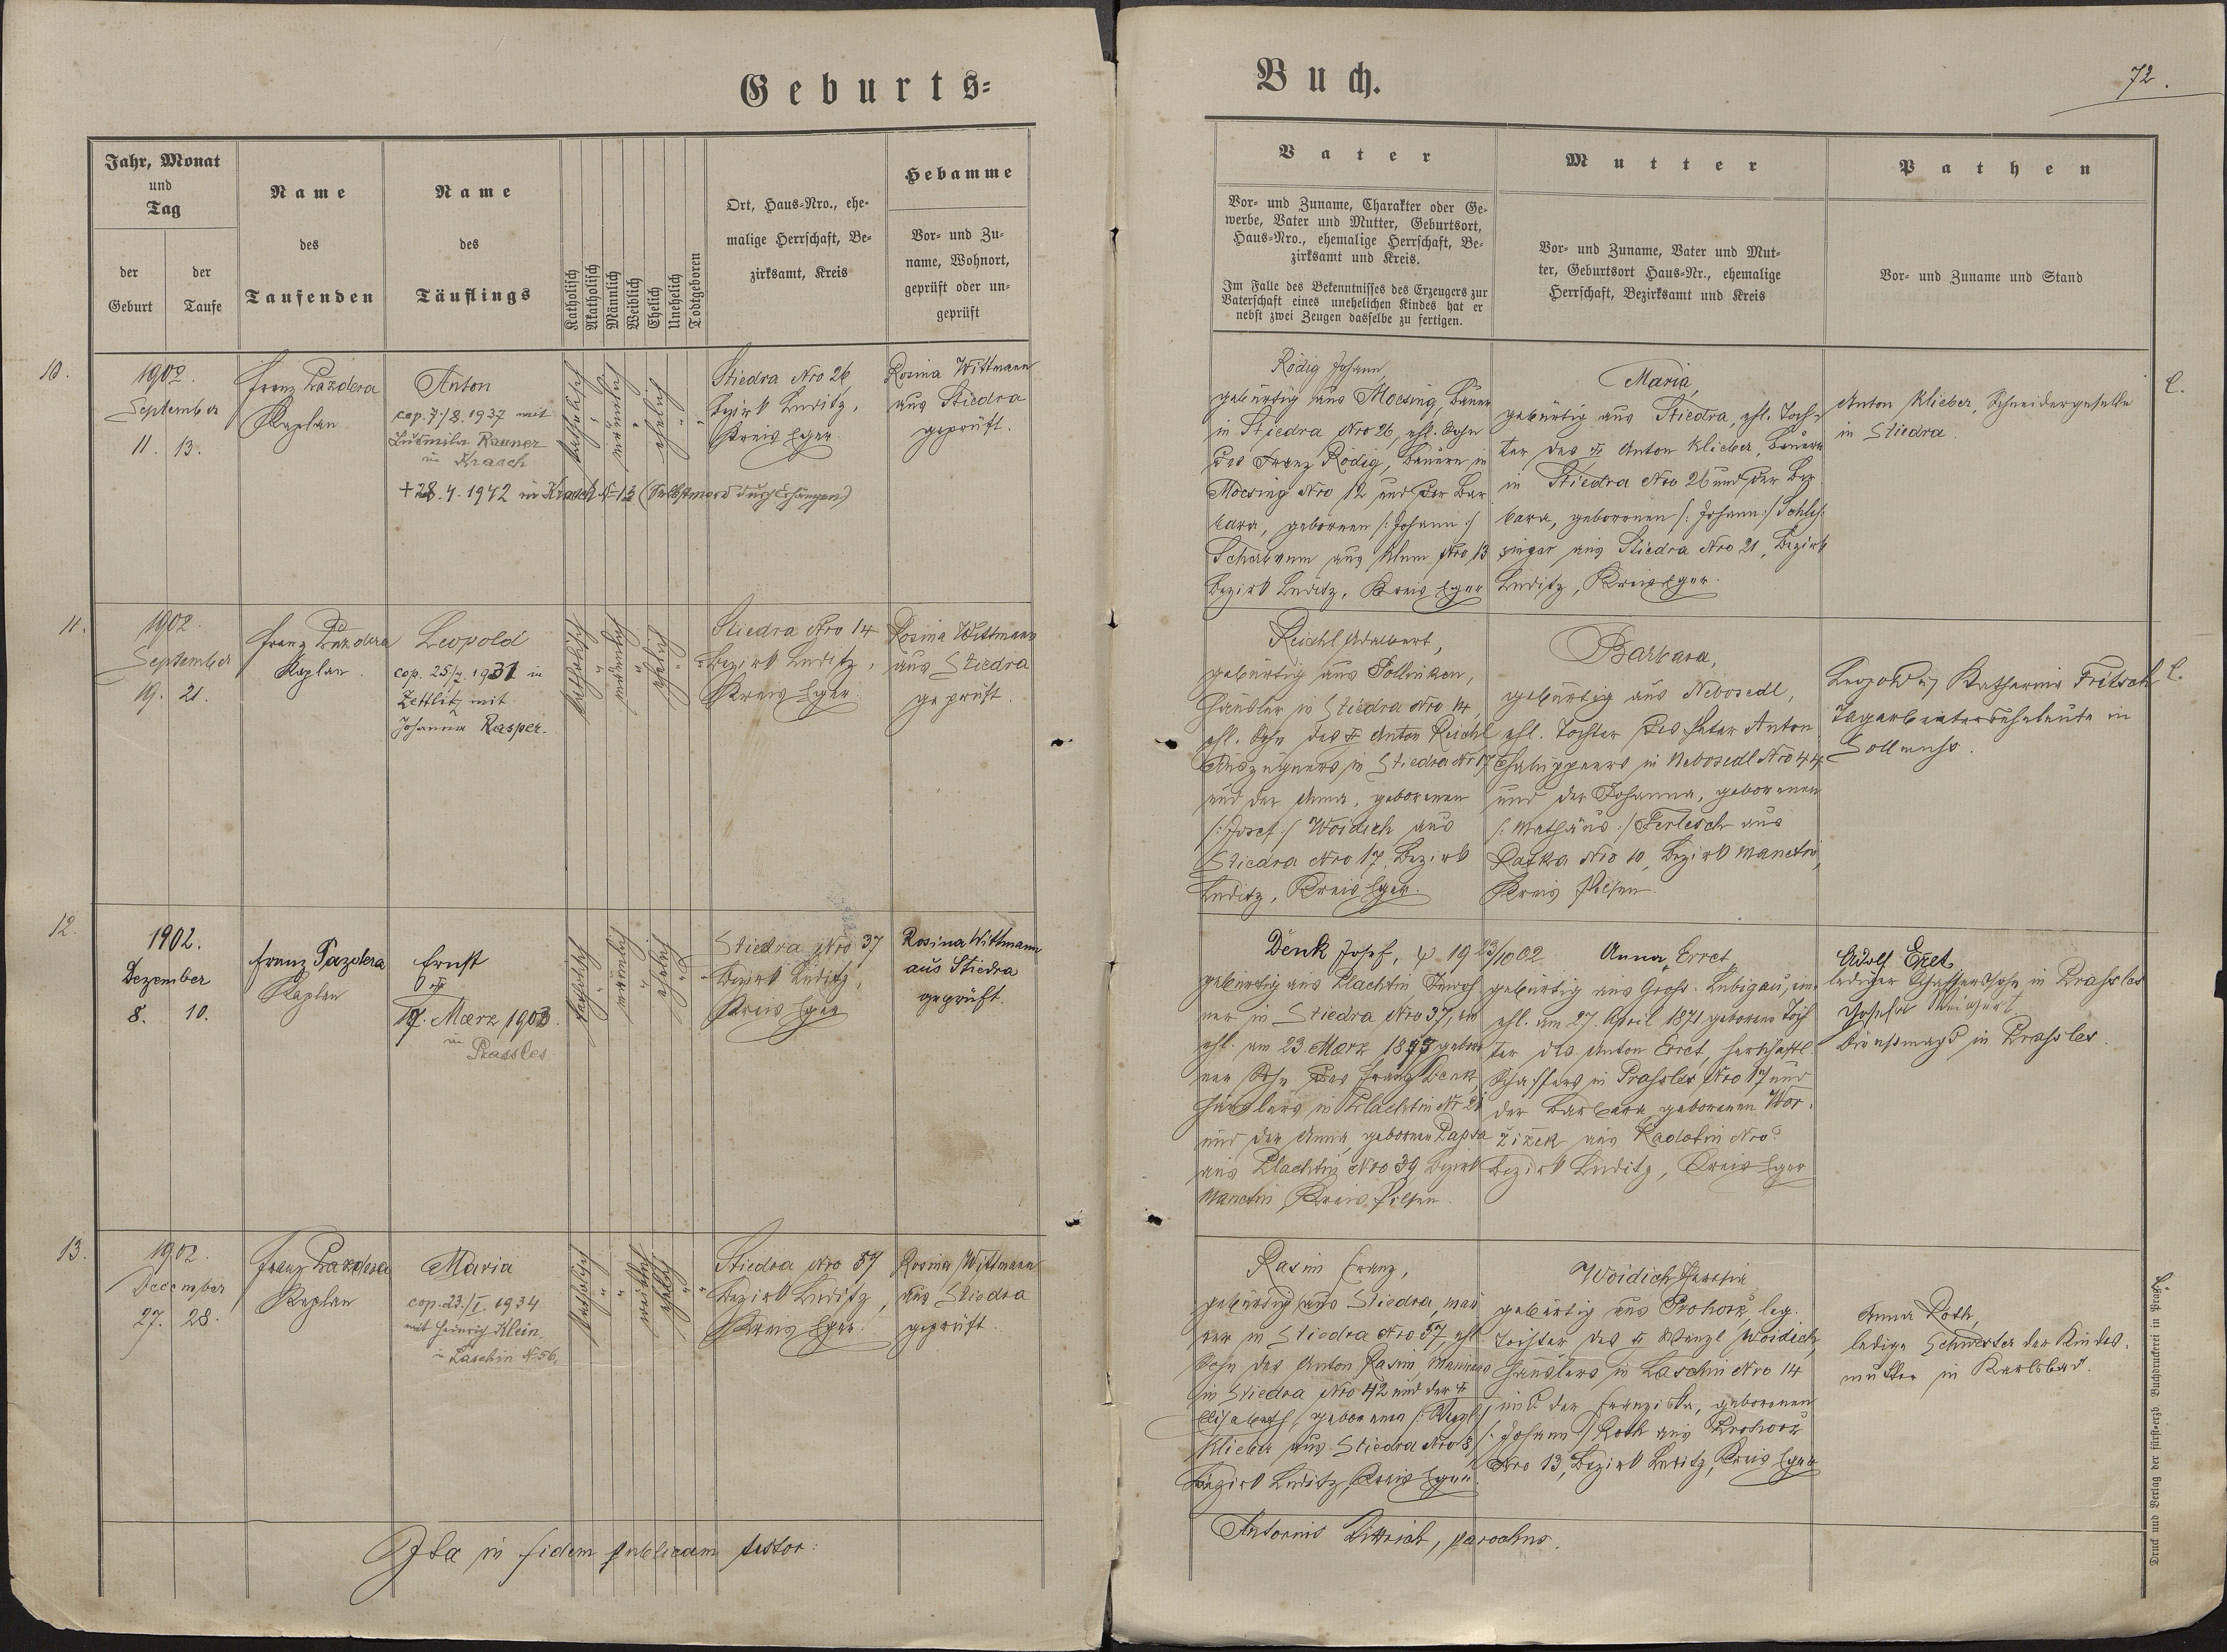 Geburts=
Buch.
72.
Jahr, Monat
und
Tag
der
Geburt
der
Taufe
Name
des
Taufenden
Name
des
Täuflings
Katholisch
Akatholisch
Männlich
Weiblich
Ehelich
Unehelich
Todtgeboren
Ort, Haus=Nro., ehe=
malige Herrschaft, Be=
zirksamt, Kreis
Hebamme
Vor= und Zu=
name, Wohnort,
geprüft oder un=
geprüft
Vater
Vor= und Zuname, Charakter oder Ge=
werbe, Vater und Mutter, Geburtsort,
Haus=Nro., ehemalige Herrschaft, Be=
zirksamt und Kreis.
Im Falle des Bekenntnisses des Erzeugers zur
Vaterschaft eines unehelichen Kindes hat er
nebst zwei Zeugen dasselbe zu fertigen.
Mutter
Vor= und Zuname, Vater und Mut=
ter, Geburtsort Haus=Nr., ehemalige
Herrschaft, Bezirksamt und Kreis
Pathen
Vor= und Zuname und Stand
10.
1902.
September
11. 13.
Franz Pazdera
Kaplan
Anton
cop. 7./8. 1937 mit
Ludmila
in Krasch
+ 28. 4. 1942 in Krasch N=13 (Selbstmord durch Erhängen)
katholisch
männlich
ehelich
Stiedra Nro 26,
Bezirk Luditz,
Kreis Eger
Rosina Wittmann
aus Stiedra
geprüft.
Rödig Johann,
gebürtig aus Mocsing, Bauer
in Stiedra Nro 26, ehl. Sohn
des Franz Rödig, Bauern in
Mocsing Nro 12 und der Bar
bara, geborenen /: Johann :/
aus Klum Nro 13
Bezirk Luditz, Kreis Eger
Maria,
gebürtig aus Stiedra, ehl. Toch=
ter des Anton Klieber, Bauers
in Stiedra Nro 26 und der Bar
bara, geborenen /: Johann :/
aus Stiedra Nro 21, Bezirk
Luditz, Kreis Eger.
Anton Klieber, Schneidergeselle
in Stiedra.
11.
1902.
September
19. 21.
Franz Pazdera
Kaplan
Leopold
cop. 25/7. 1931 in
Zettlitz mit
Johanna Kasper.
katholisch
männlich
ehelich
Stiedra Nro 14
Bezirk Luditz,
Kreis Eger
Rosina Wittmann
aus Stiedra
geprüft.
Reichl Adalbert,
gebürtig aus Pollinken,
Häusler in Stiedra Nro 14,
ehl. Sohn des Anton Reichl
Auszüglers in Stiedra Nr 17
und der Anna, geborenen
/: Josef :/ Woidich aus
Stiedra Nro 17, Bezirk
Luditz, Kreis Eger.
Barbara,
gebürtig aus Nebosedl,
ehl. Tochter des Peter Anton,
Chaluppners in Nebosedl Nro 44
und der Johanna, geborenen
/: Mathäus :/ Ferlesch aus
Nro 10, Bezirk Manetin,
Kreis Pilsen.
Leopold u. Katharina Fritsch
Tagarbeiterseheleute in
Sollmus.
12.
1902.
Dezember
8. 10.
Franz Pazdera
Kaplan
Ernst
17. Maerz 1903.
in Prassles
katholisch
männlich
ehelich
Stiedra Nro 37
Bezirk Luditz,
Kreis Eger
Rosina Wittmann
aus Stiedra
geprüft.
Denk Josef, 19 23/10 02
gebürtig aus Plachtin, Inwoh
ner in Stiedra Nro 37,
ehl. am 23. Maerz 1873 gebore
ner Sohn des Franz Denk,
Häuslers in Plachtin Nr 28
und der Anna, geborenen
aus Plachtin Nro 39, Bezirk
Manetin, Kreis Pilsen.
Anna Erret,
gebürtig aus Gross-Lubigau,
ehl. am 27. April 1871 geborene Toch
ter des Anton Erret, herrschaftl
Schaffers in Prassles Nro 17 und
der Barbara geborenen Wor=
žižek aus Radotin Nro ?
Bezirk Luditz, Kreis Eger
Adolf Erret,
lediger Schafferssohn in Prassles
Josefa
Dienstmagd in Prassles.
13.
1902.
December
27. 28.
Franz Pazdera
Kaplan
Maria
cop. 23./I. 1934
mit Heinrich Klein
in Laschin N=56,
katholisch
weiblich
ehelich
Stiedra Nro 57
Bezirk Luditz,
Kreis Eger.
Rosina Wittmann
aus Stiedra
geprüft.
Rasim Franz,
gebürtig aus Stiedra, Mau
rer in Stiedra Nro 57, ehl
Sohn des Anton Rasim, Maurers
in Stiedra Nro 42 und der
Elisabeth, geborenen /: Wenzl :/
Klieber aus Stiedra Nro 8,
Bezirk Luditz, Kreis Eger.
Woidich Theresia,
gebürtig aus Prohorz, leg.
Tochter des Wenzl Woidich,
Häuslers in Laschin Nro 14
und der Franziska, geborenen
/: Johann :/ Roth aus Prohorz
Nro 13, Bezirk Luditz, Kreis Eger
Anna Roth,
ledige Schwester der Kindes=
mutter in Karlsbad.
Ita in fidem publicam testor:
Antonius Dittrich, parochus.
Druck und Verlag der fürst=erzb. Buchdruckerei in Prag.